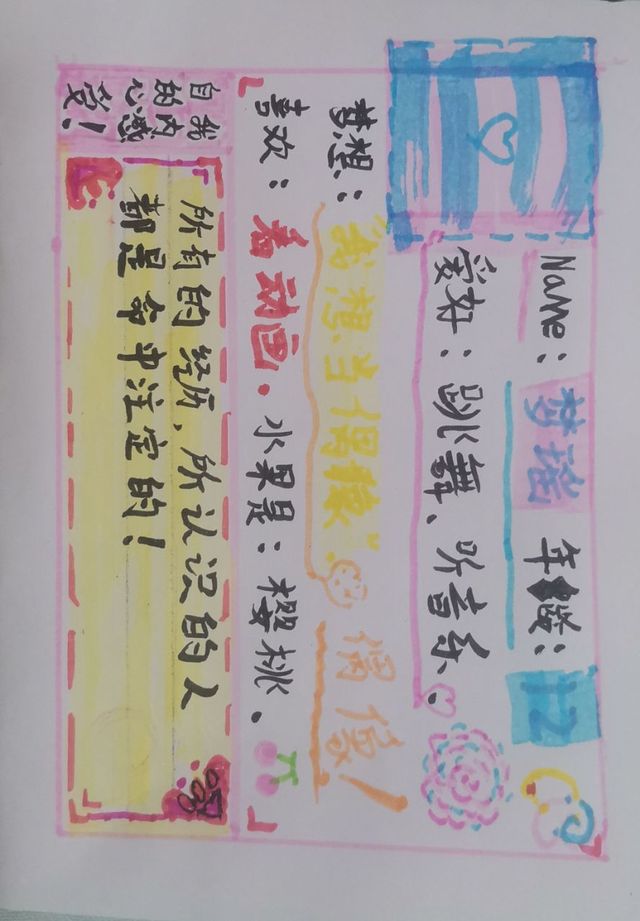 Name：梦瑶 年龄：12
爱好：跳舞、听音乐.
梦想："我想当偶像" 偶像！
喜欢：看动画. 水果是：樱桃.
自我的内心感受！
所有的经历，所认识的人
都是命中注定的！